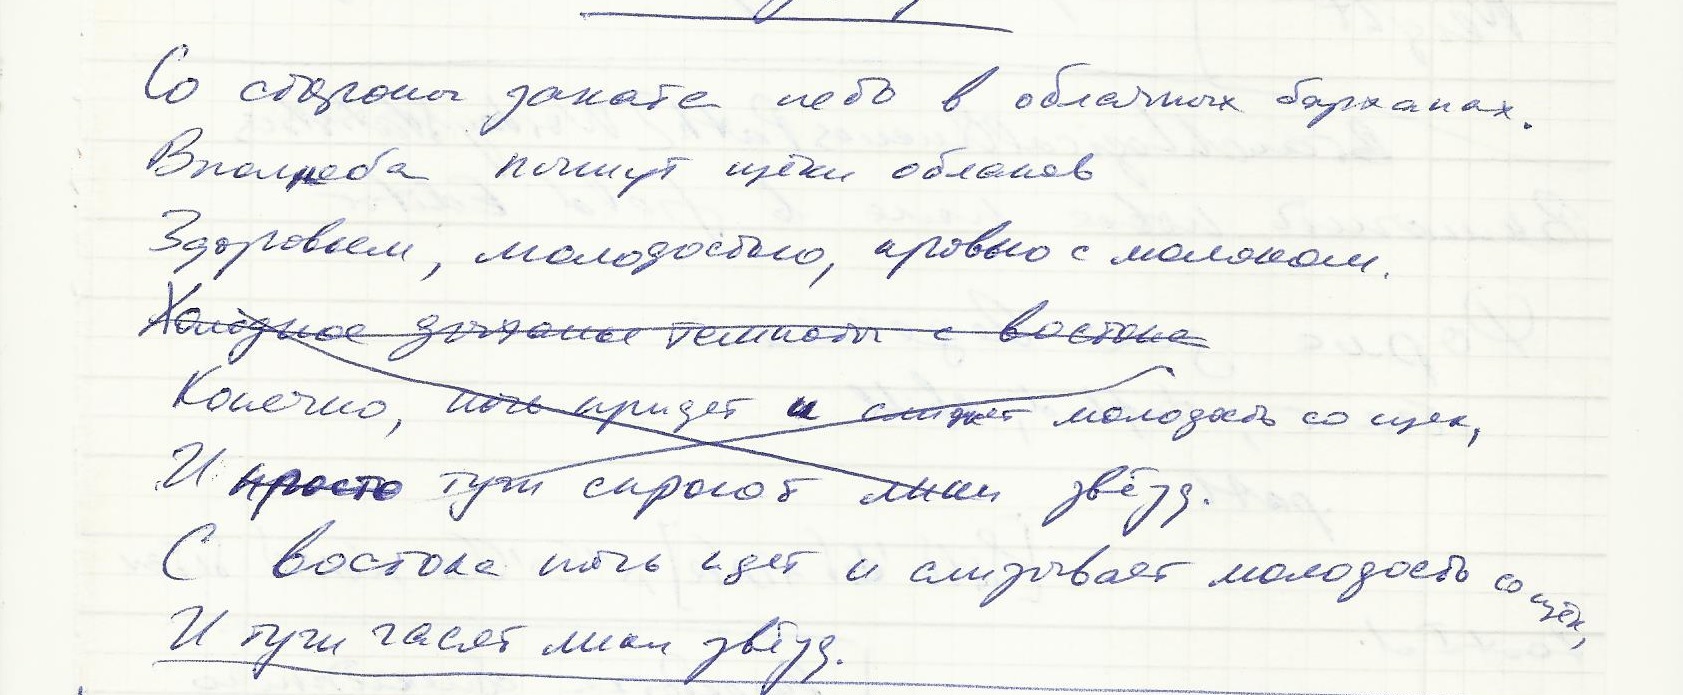 Со стороны заката небо в облачных барханах.
Вполнеба пышут щёки облаков
Здоровьем, молодостью, кровью с молоком.
Холодное дыханье темноты с востока
Конечно, ночь придет и слижет молодость со щек,
И просто тучи скроют лики звёзд.
С востока ночь идет и слизывает молодость со щёк,
И тучи гасят лики звёзд.